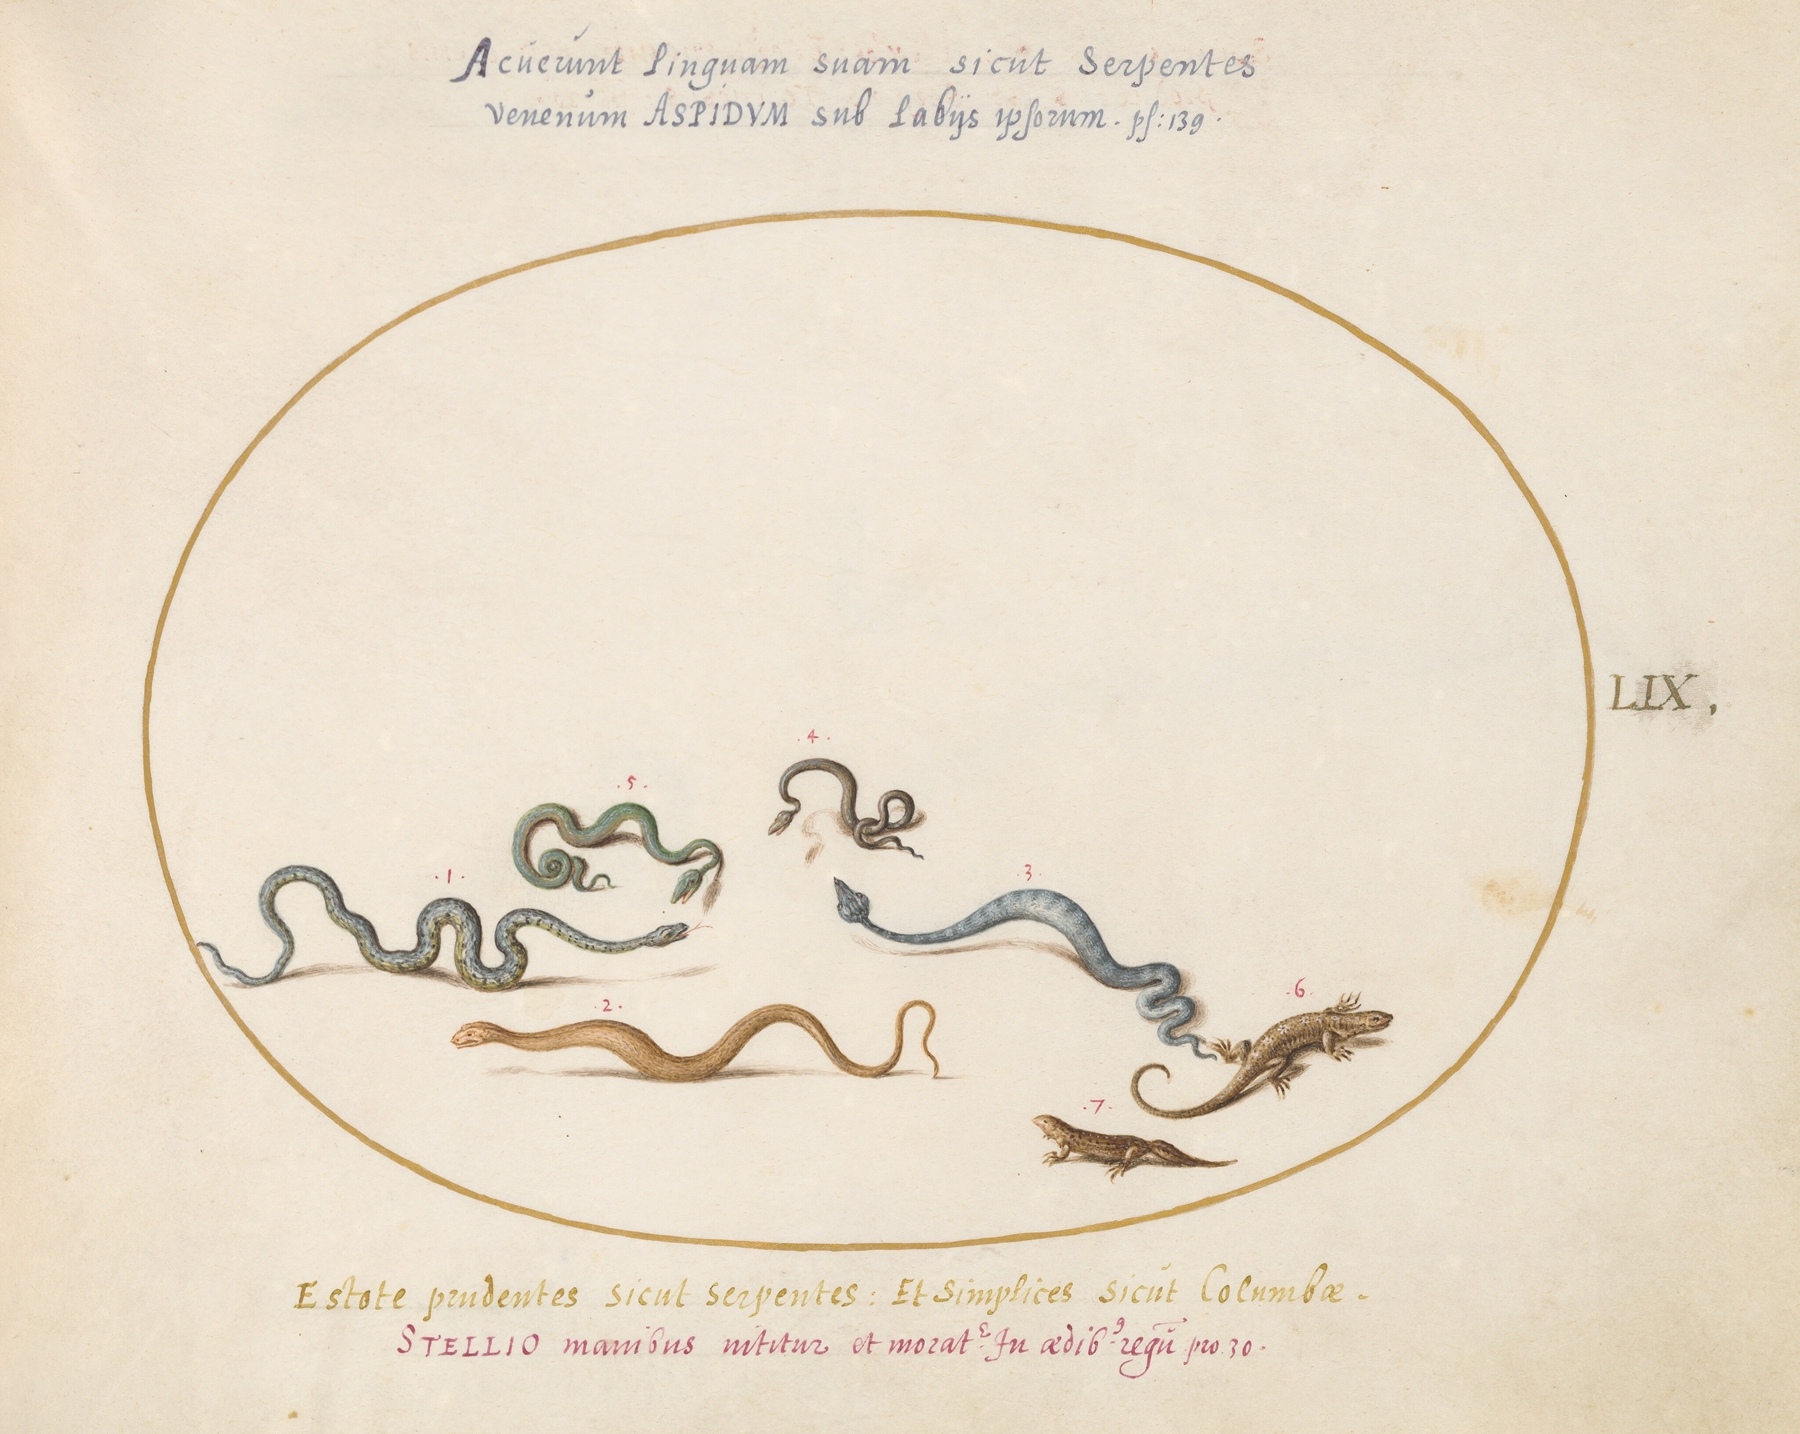 Acuerunt linguam suam sicut Serpentes
venenum ASPIDVM sub labijs ipsorum. ps: 139.
LIX.
.4.
.5.
.1.
.3.
.2.
.6.
.7.
Estote prudentes sicut serpentes: Et simplices sicut Columbæ.
STELLIO manibus nititur et morat^r In ædib^9 regū pro. 30.